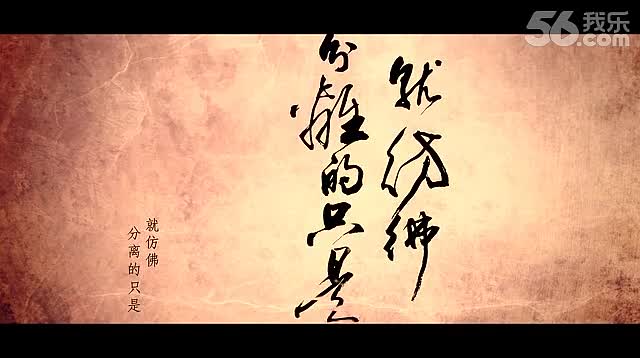 56我乐
.com
就彷彿
分離的只是
就仿佛
分离的只是